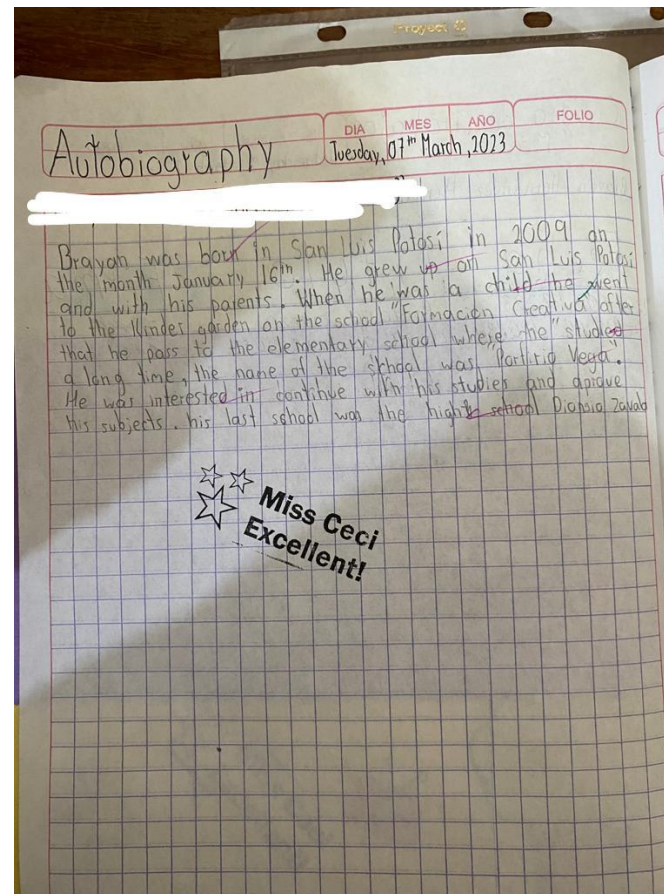 Proyect
DIA MES AÑO FOLIO
Autobiography Tuesday, 07th March, 2023
Brayan was born in San Luis Potosí in 2009 on
the month January 16th. He grew up on San Luis Potosi
and with his parents. When he was a child he went
to the Kinder garden on the school "Formación Creativa" after
that he pass to the elementary school where he studied
a long time, the name of the school was "Porfirio Vega".
He was interested in continue with his studies and aprove
his subjects. his last school was the hight school Dionsio Zavala
Miss Ceci
Excellent!